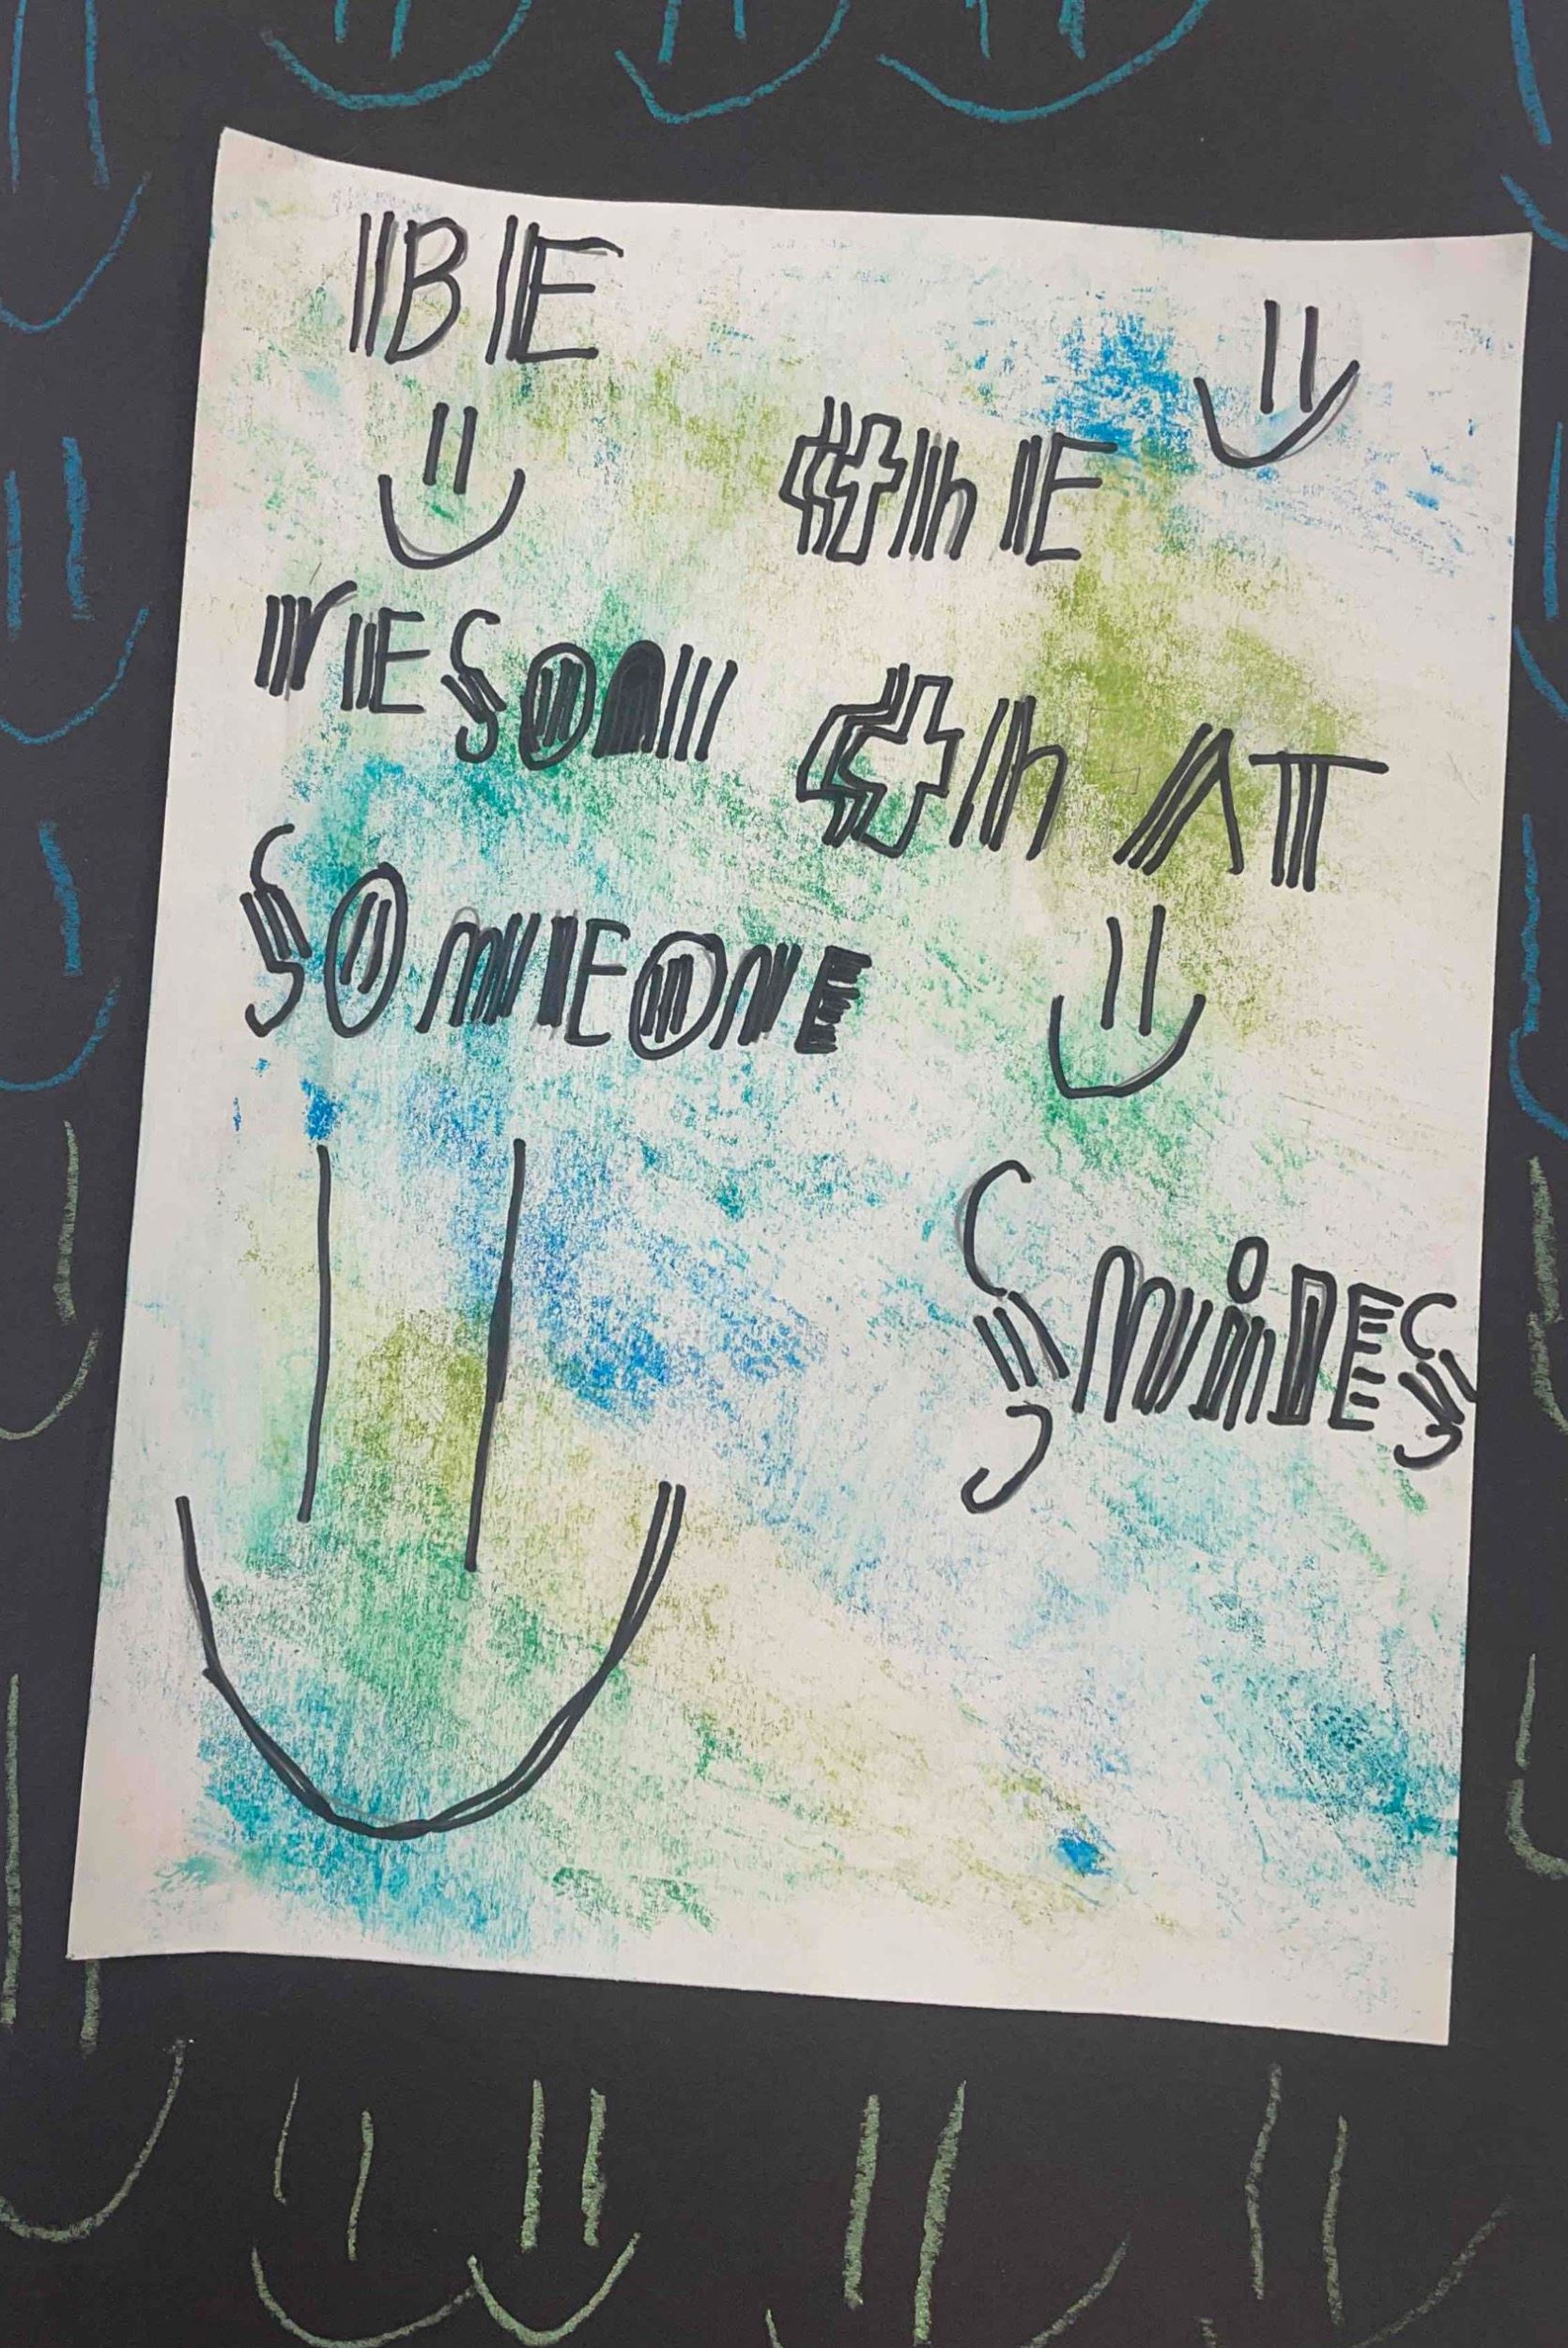 BE
thE
rESOn thAT
SOmEOnE
SmilES